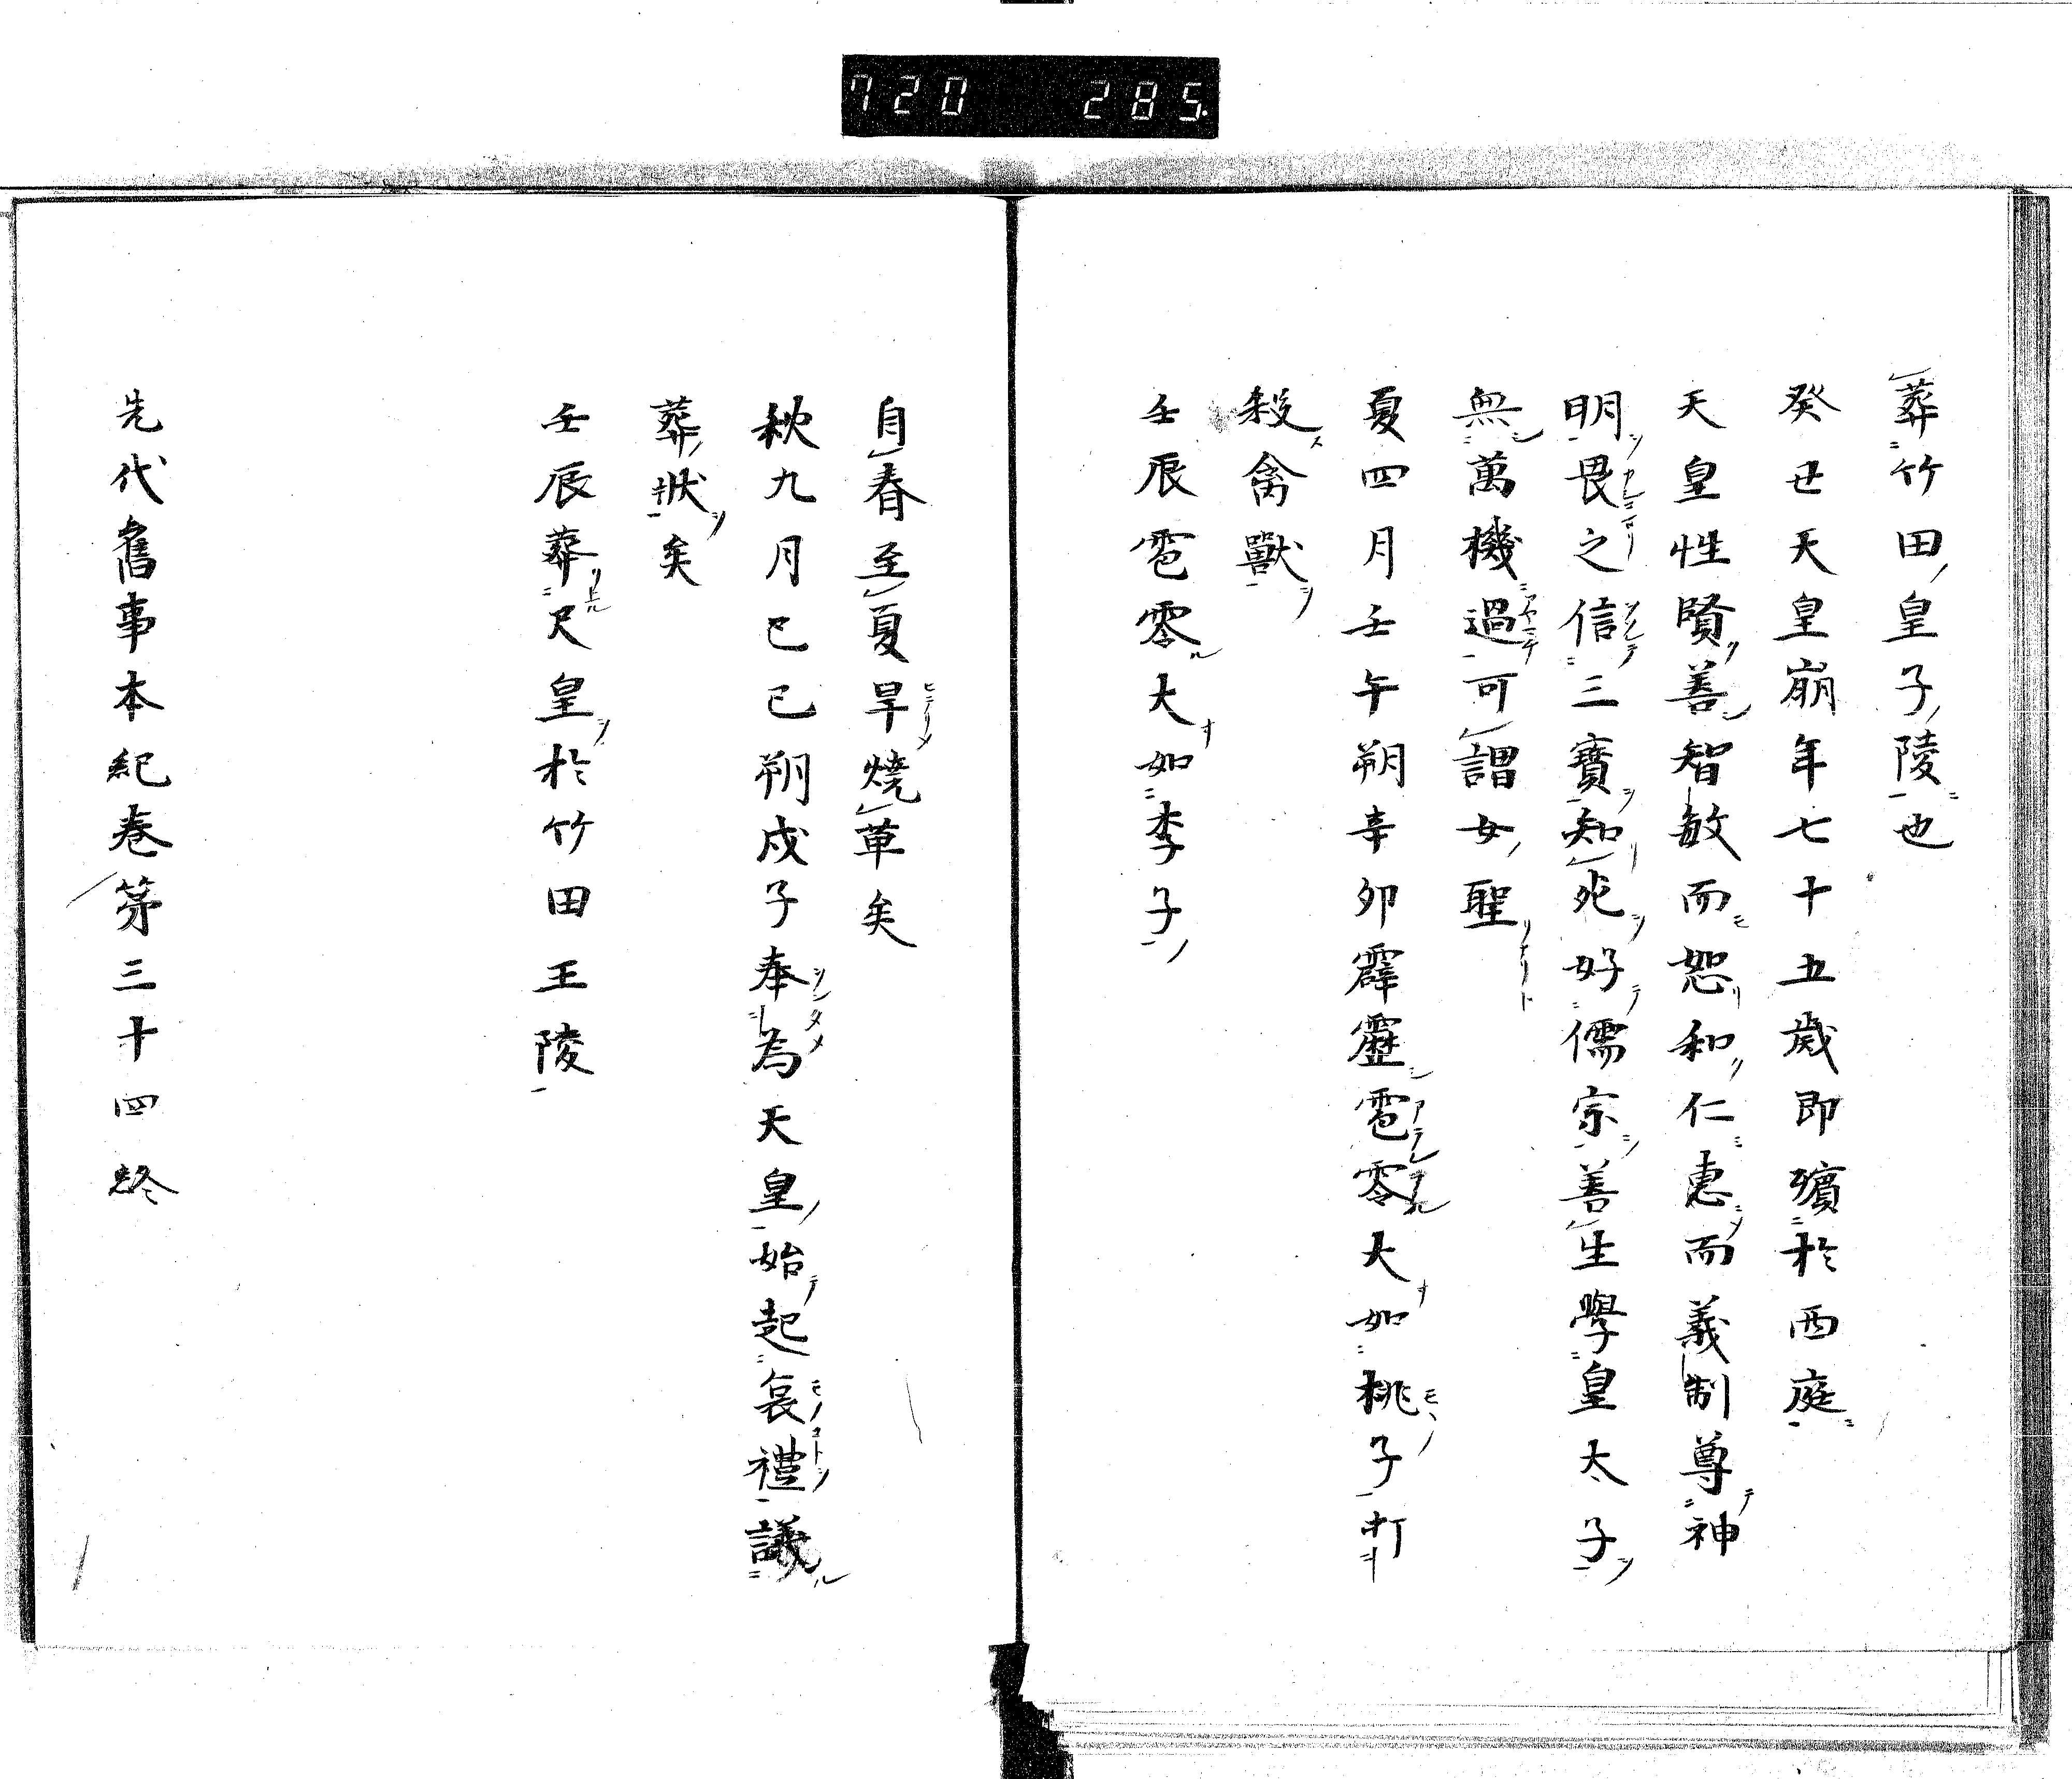 720 285.
葬竹田皇子陵也
癸丑天皇崩年七十五歲即殯於西庭
天皇性賢善智敏而恕和仁惠而義制尊神
明畏之信三寶知死好儒宗善生學皇太子
無萬機過可謂女聖
夏四月壬午朔辛卯霹靂雹零大如桃子打
殺禽獸
壬辰雹零大如李子
自春至夏旱燒草矣
秋九月己巳朔戊子奉為天皇始起哀禮議
葬狀矣
壬辰葬尺皇於竹田王陵
先代舊事本紀卷第三十四終